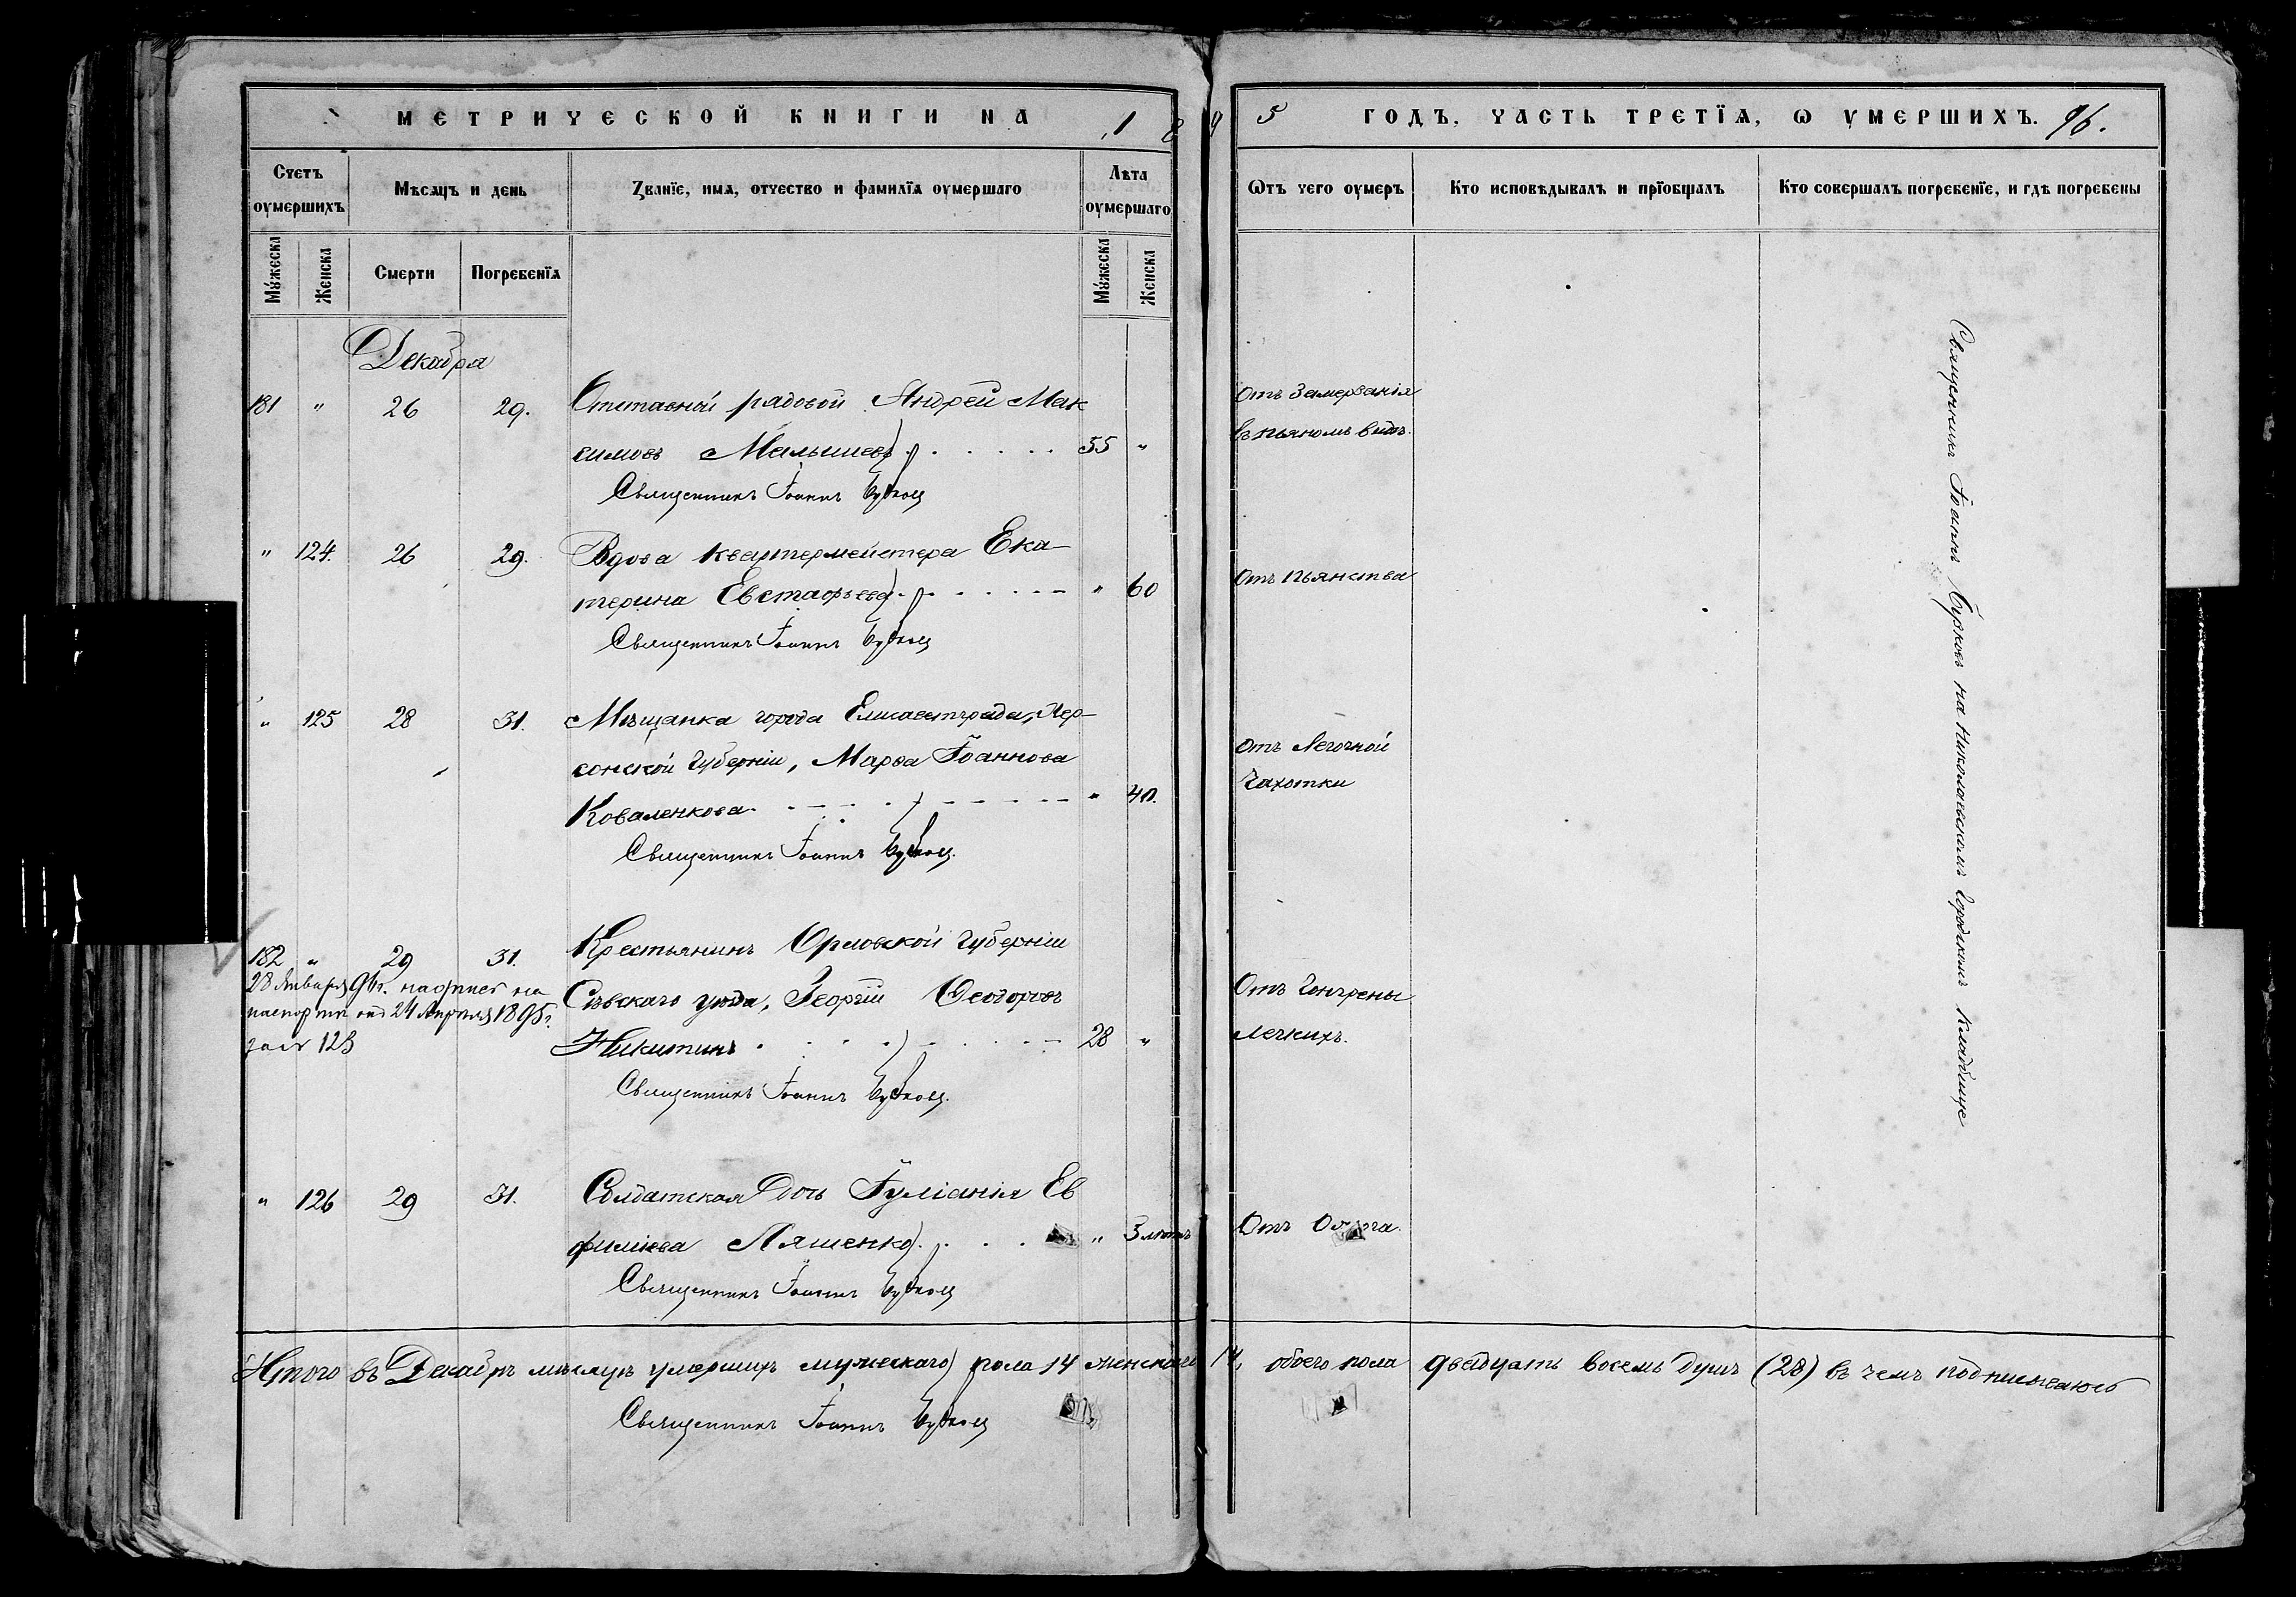 МЕТРИЧЕСКОЙ КНИГИ НА 1895 ГОДЪ, ЧАСТЬ ТРЕТІЯ, Ѡ УМЕРШИХЪ. 96.
Счетъ оумершихъ
Мѣсяцъ и день
Званїе, имя, отчество и фамилїя оумершаго
Лѣта оумершаго
Ѿтъ чего оумеръ
Кто исповѣдывалъ и прїобщалъ
Кто совершалъ погребенїе, и гдѣ погребены
Мужеска
Женска
Смерти
Погребенїя
Мужеска
Женска
Декабря
181 " 26 29. Отставной рядовой Андрей Мак
симовъ Малышевъ 55 "
Отъ замерзанія
въ пьяномъ видѣ.
Священникъ Іоаннъ
" 124. 26 29. Вдова квартермейстера Ека-
терина Евстафьева " 60
Отъ пьянства
Священникъ Іоаннъ
" 125 28 31. Мѣщанка города Елисаветграда, Хер-
сонской губерніи, Марѳа Іоаннова
Коваленкова " 40.
Отъ легочной
чахотки
Священникъ Іоаннъ
182 " 29 31. Крестьянинъ Орловской губерніи
Сѣвскаго уѣзда, Георгій Ѳеодоровъ
Никитинъ 28 "
28 Января 96 г. на
паспортѣ отъ 24 Апрѣля 1895 г.
за № 123
Отъ гангрены
легкихъ.
Священникъ Іоаннъ
" 126 29 31. Солдатская дочь Іуліанія Ев
фиміева Ляшенко " 3 лѣтъ
Отъ
Священникъ Іоаннъ
Священникъ Іоаннъ на Николаевскомъ городскомъ кладбище
Итого въ Декабрѣ мѣсяцѣ умершихъ мужескаго пола 14 женскаго 14, обоего пола двадцать восемь душъ (28) въ чемъ подписываюсь
Священникъ Іоаннъ